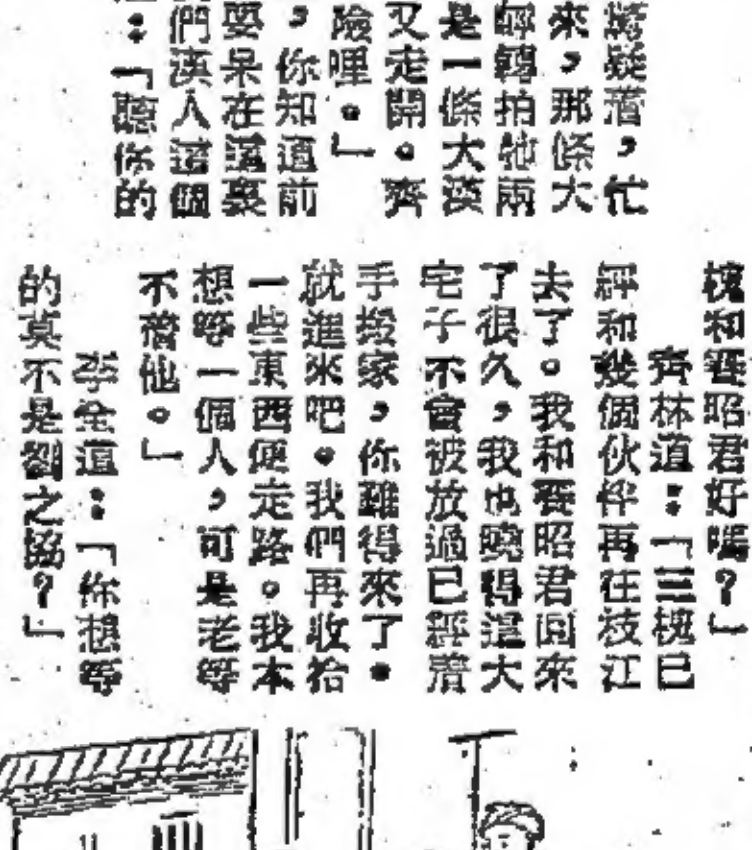 驚疑著，忙
來，那條大
輕輕拍牠兩
是一條大漢
又走開。齊
險哩。」
，你知道前
要呆在這裏
們漢人這個
：「聽你的
槐和賽昭君好嗎？」
齊林道：「三槐已
經和幾個伙伴再往枝江
去了。我和賽昭君回來
了很久，我也曉得這大
宅子不會被放過已經著
手搬家，你難得來了。
就進來吧。我們再收拾
一些東西便走路。我本
想等一個人，可是老等
不著他。」
李全道：「你想等
的莫不是劉之協？」